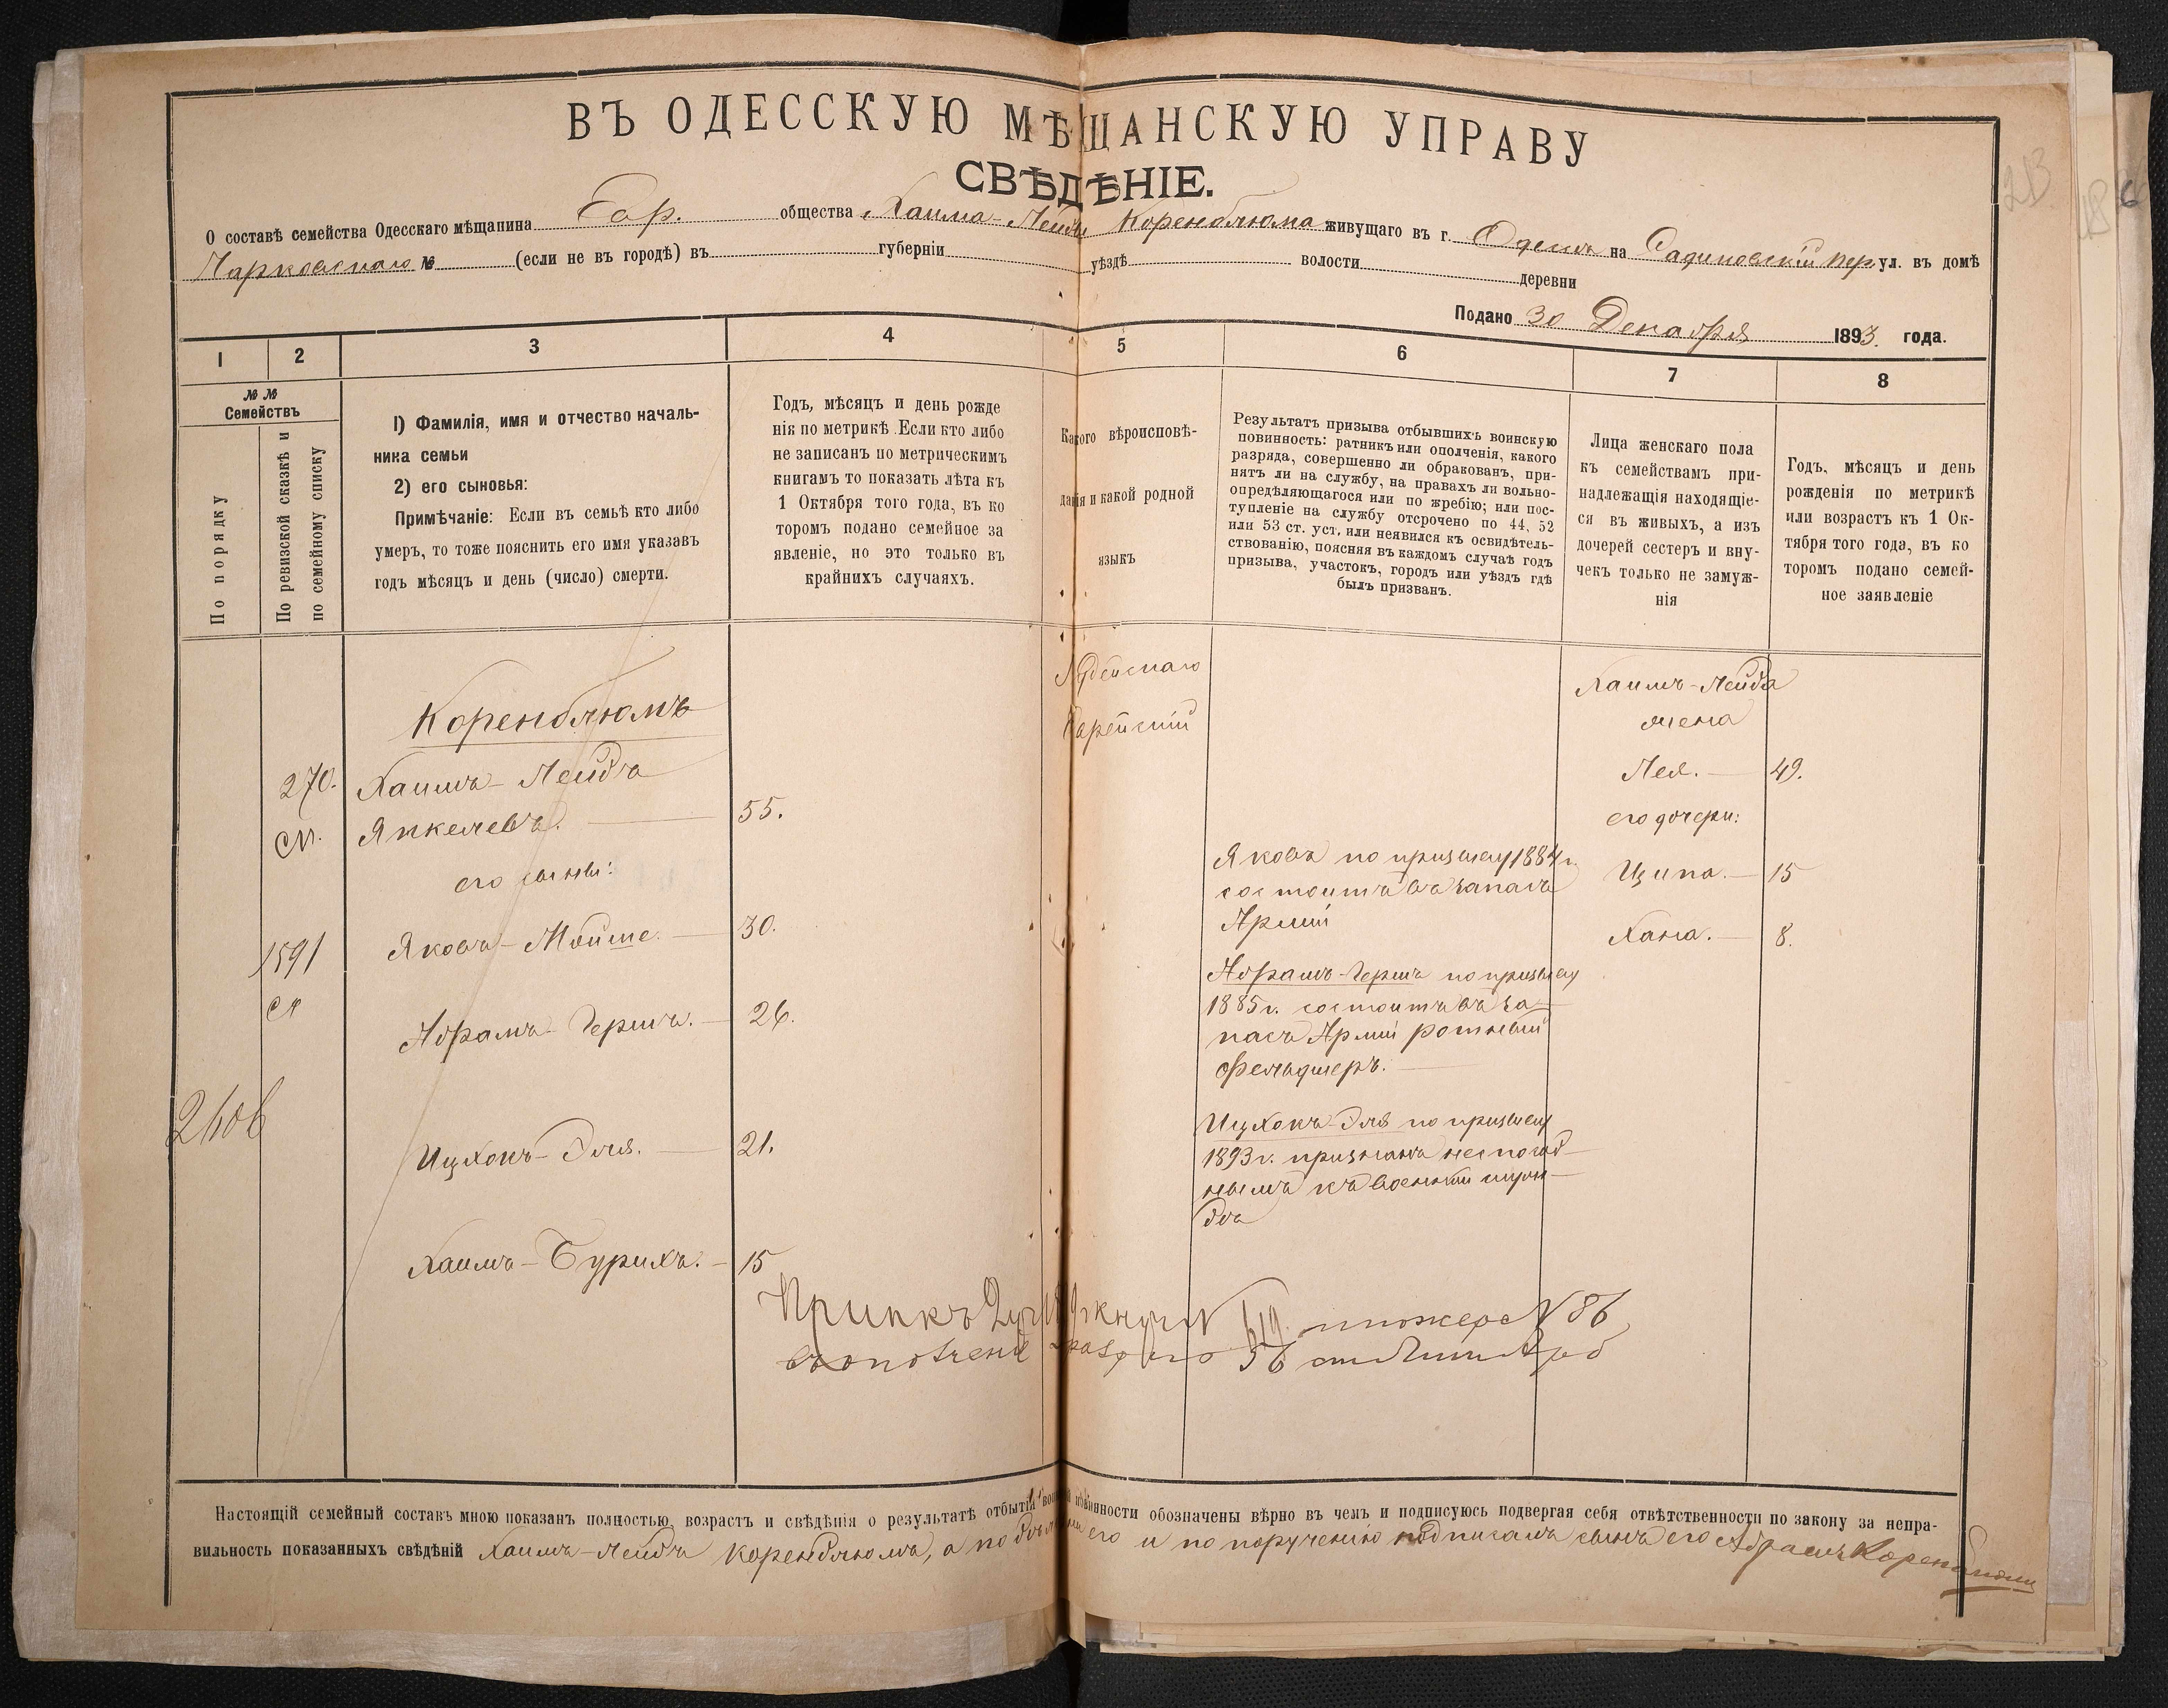 ВЪ ОДЕССКУЮ МѢЩАНСКУЮ УПРАВУ
СВѢДѢНІЕ.
О составѣ семейства Одесскаго мѣщанина Евр. общества Хаима-Лейды Коренблюма живущаго въ г. Одессѣ на пер. ул. въ домѣ
№ (если не въ городѣ) въ губерніи уѣздѣ волости деревни
Подано 30 Декабря 1893 года.
1 2 3 4 5 6 7 8
№ №
Семействъ
По порядку
По ревизской сказкѣ и
по семейному списку
1) Фамилія, имя и отчество началь-
ника семьи
2) его сыновья:
Примѣчаніе: Если въ семьѣ кто либо
умеръ, то тоже пояснить его имя указавъ
годъ мѣсяцъ и день (число) смерти.
Годъ, мѣсяцъ и день рожде
нія по метрикѣ. Если кто либо
не записанъ по метрическимъ
книгамъ то показать лѣта къ
1 Октября того года, въ ко
торомъ подано семейное за
явленіе, но это только въ
крайнихъ случаяхъ.
Какого вѣроисповѣ-
данія и какой родной
языкъ
Результатъ призыва отбывшихъ воинскую
повинность: ратникъ или ополченія, какого
разряда, совершенно ли обракованъ, при-
нятъ ли на службу, на правахъ ли вольно-
опредѣляющагося или по жребію; или пос-
тупленіе на службу отсрочено по 44, 52
или 53 ст. уст. или неявился къ освидѣтель-
ствованію, поясняя въ каждомъ случаѣ годъ
призыва, участокъ, городъ или уѣздъ гдѣ
былъ призванъ.
Лица женскаго пола
къ семействамъ при-
надлежащія находящіе-
ся въ живыхъ, а изъ
дочерей сестеръ и вну-
чекъ только не замуж-
нія
Годъ, мѣсяцъ и день
рожденія по метрикѣ
или возрастъ къ 1 Ок-
тября того года, въ ко
торомъ подано семей-
ное заявленіе
Коренблюмъ
270. Хаимъ-Лейдъ
сп. Янкелевъ. 55.
его сыновья:
1591 Яковъ-Мойше. 30.
сп
Абрамъ-Гершъ. 26.
2606
Ицхокъ-Эля. 21.
Хаимъ-Бурихъ. 15
Іудейскаго
Еврейскій
Яковъ по призыву 1884 г.
состоитъ въ запасѣ
Арміи
Абрамъ-Гершъ по призыву
1885 г. состоитъ въ за
пасѣ Арміи ротный
фельдшеръ.
Ицхокъ-Эля по призыву
1893 г. признанъ неспособ-
нымъ къ военной служ-
бѣ
Хаимъ-Лейда
жена
Лея. 49.
его дочери:
Ципа. 15
Хана. 8.
№ 86
56
Настоящій семейный составъ мною показанъ полностью, возрастъ и свѣдѣнія о результатѣ отбытія воинской повинности обозначены вѣрно въ чемъ и подписуюсь подвергая себя отвѣтственности по закону за непра-
вильность показанныхъ свѣдѣній Хаимъ-Лейдъ Коренблюмъ, а его и по порученію подписалъ сынъ его Абрамъ Коренблюмъ